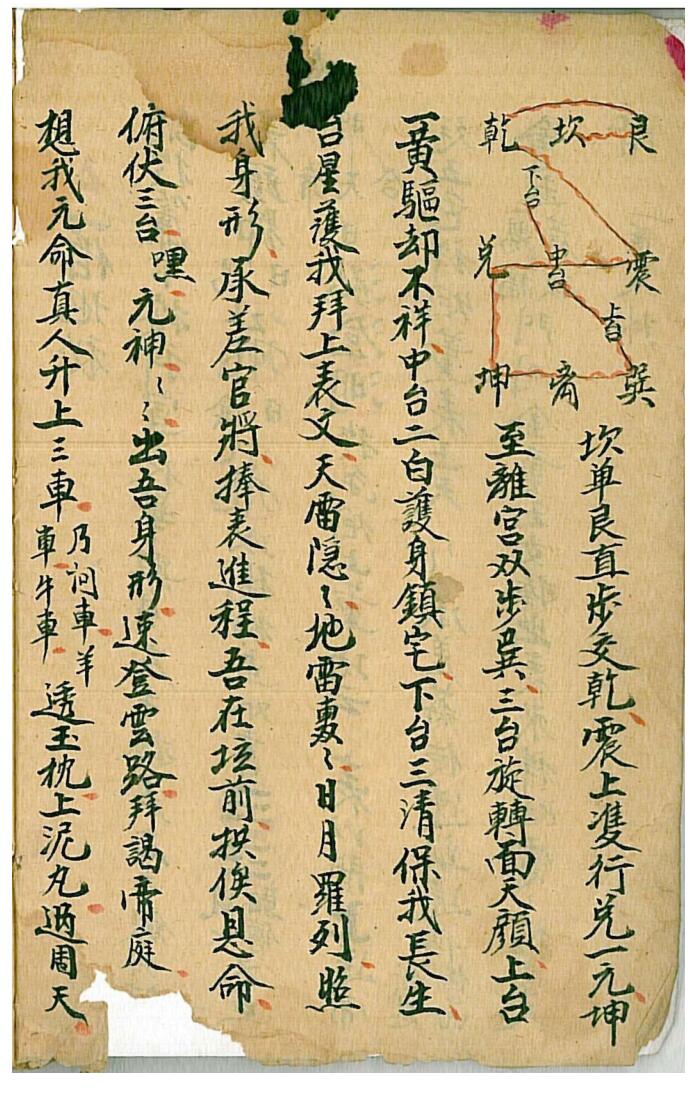 艮
坎
乾
下台
震
中台
兑
上台
巽
离
坤
坎单艮直步交乾震上隻行兑一元坤
至離宫双步巽三台旋轉面天顔上台
一黄驅却不祥中台二白護身鎮宅下台三清保我長生
台星護我拜上表文天雷隐〻地雷轰〻日月羅列照
我身形承差官将捧表進程吾在坛前拱俟恩命
俯伏三台嘿元神〻〻出吾身形速登雲路拜謁帝庭
想我元命真人升上三車
乃詞車羊
車牛車
透玉枕上泥丸過周天